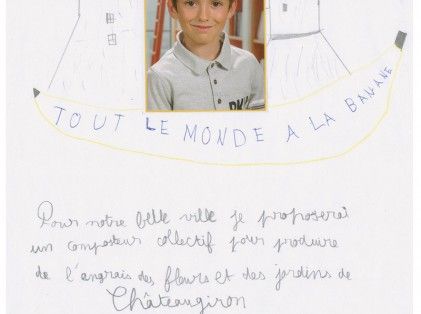 TOUT LE MONDE A LA BANANE
Pour notre belle ville je proposerai
un composteur collectif pour produire
de l'angrais des fleurs et des jardins de
Châteaugiron